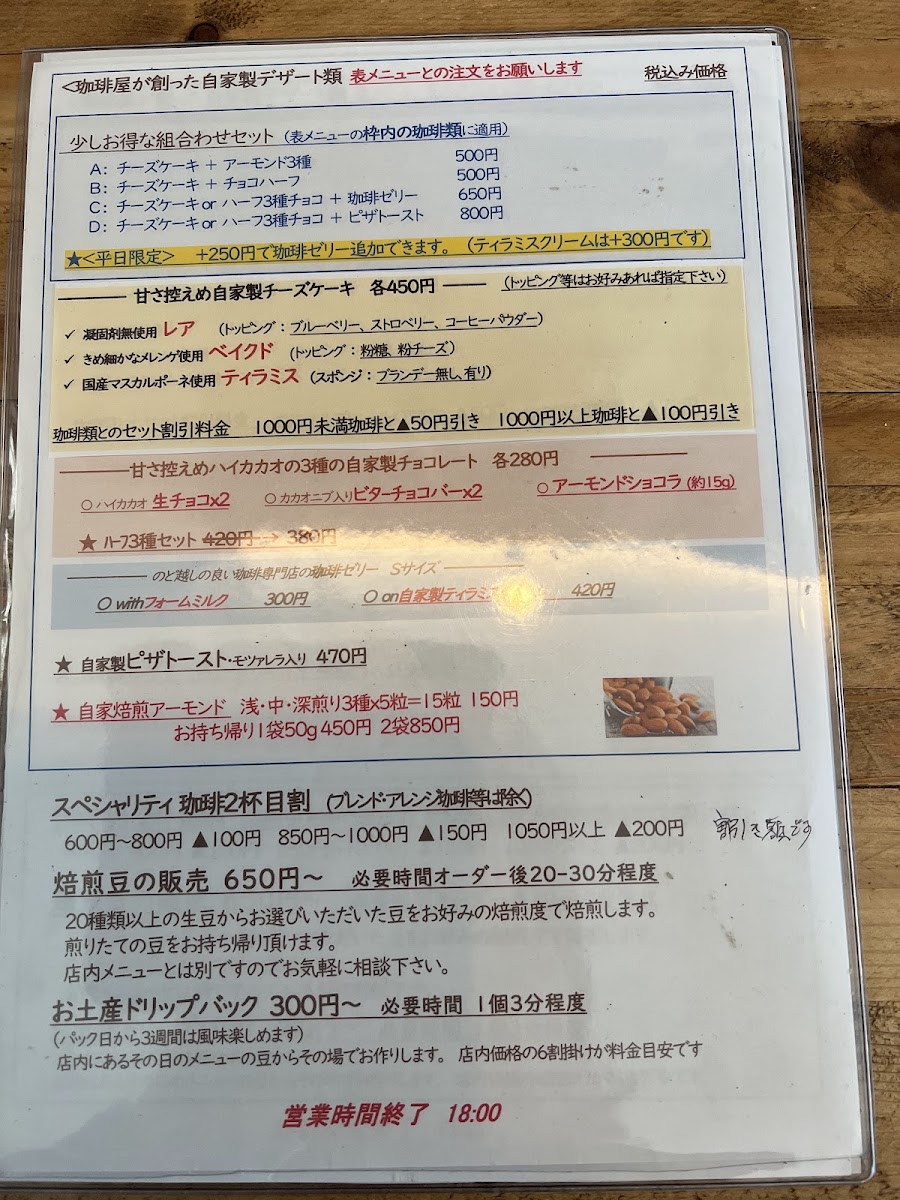 <珈琲屋が創った自家製デザート類 表メニューとの注文をお願いします 税込み価格
少しお得な組合わせセット (表メニューの枠内の珈琲類に適用)
A: チーズケーキ + アーモンド3種 500円
B: チーズケーキ + チョコハーフ 500円
C: チーズケーキ or ハーフ3種チョコ + 珈琲ゼリー 650円
D: チーズケーキ or ハーフ3種チョコ + ピザトースト 800円
★<平日限定> +250円で珈琲ゼリー追加できます。 (ティラミスクリームは+300円です)
甘さ控えめ自家製チーズケーキ 各450円 (トッピング等はお好みあれば指定下さい)
✓ 凝固剤無使用 レア (トッピング: ブルーベリー、ストロベリー、コーヒーパウダー)
✓ きめ細かなメレンゲ使用 ベイクド (トッピング: 粉糖、粉チーズ)
✓ 国産マスカルポーネ使用 ティラミス (スポンジ: ブランデー無し、有り)
珈琲類とのセット割引料金 1000円未満珈琲と▲50円引き 1000円以上珈琲と▲100円引き
甘さ控えめハイカカオの3種の自家製チョコレート 各280円
○ ハイカカオ 生チョコx2 ○ カカオニブ入りビターチョコバーx2 ○ アーモンドショコラ (約15g)
★ ハーフ3種セット 420円 → 380円
のど越しの良い珈琲専門店の珈琲ゼリー Sサイズ
○ withフォームミルク 300円 ○ on自家製ティラミス 420円
★ 自家製ピザトースト・モツァレラ入り 470円
★ 自家焙煎アーモンド 浅・中・深煎り3種x5粒=15粒 150円
お持ち帰り1袋50g 450円 2袋850円
スペシャリティ 珈琲2杯目割 (ブレンド・アレンジ珈琲等は除く)
600円~800円 ▲100円 850円~1000円 ▲150円 1050円以上 ▲200円 割引き額です
焙煎豆の販売 650円~ 必要時間オーダー後20-30分程度
20種類以上の生豆からお選びいただいた豆をお好みの焙煎度で焙煎します。
煎りたての豆をお持ち帰り頂けます。
店内メニューとは別ですのでお気軽に相談下さい。
お土産ドリップバック 300円~ 必要時間 1個3分程度
(パック日から3週間は風味楽しめます)
店内にあるその日のメニューの豆からその場でお作りします。 店内価格の6割掛けが料金目安です
営業時間終了 18:00